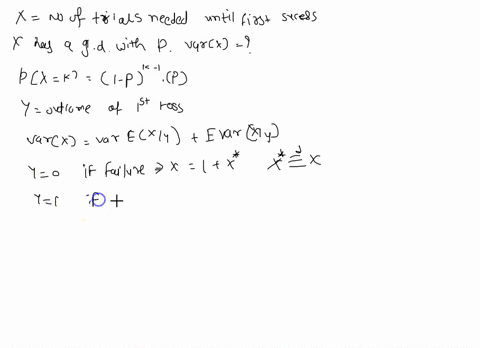 X = no of trials needed until first sucess
X has a g.d. with p. var(x) = ?
P(X = K) = (1-P)^{K-1} . (P)
Y = outcome of 1st toss
var(X) = var E(X/y) + E var(X/y)
Y=0 if failure ⇒ X = 1 + X* X* \stackrel{d}{=} X
Y=1 if